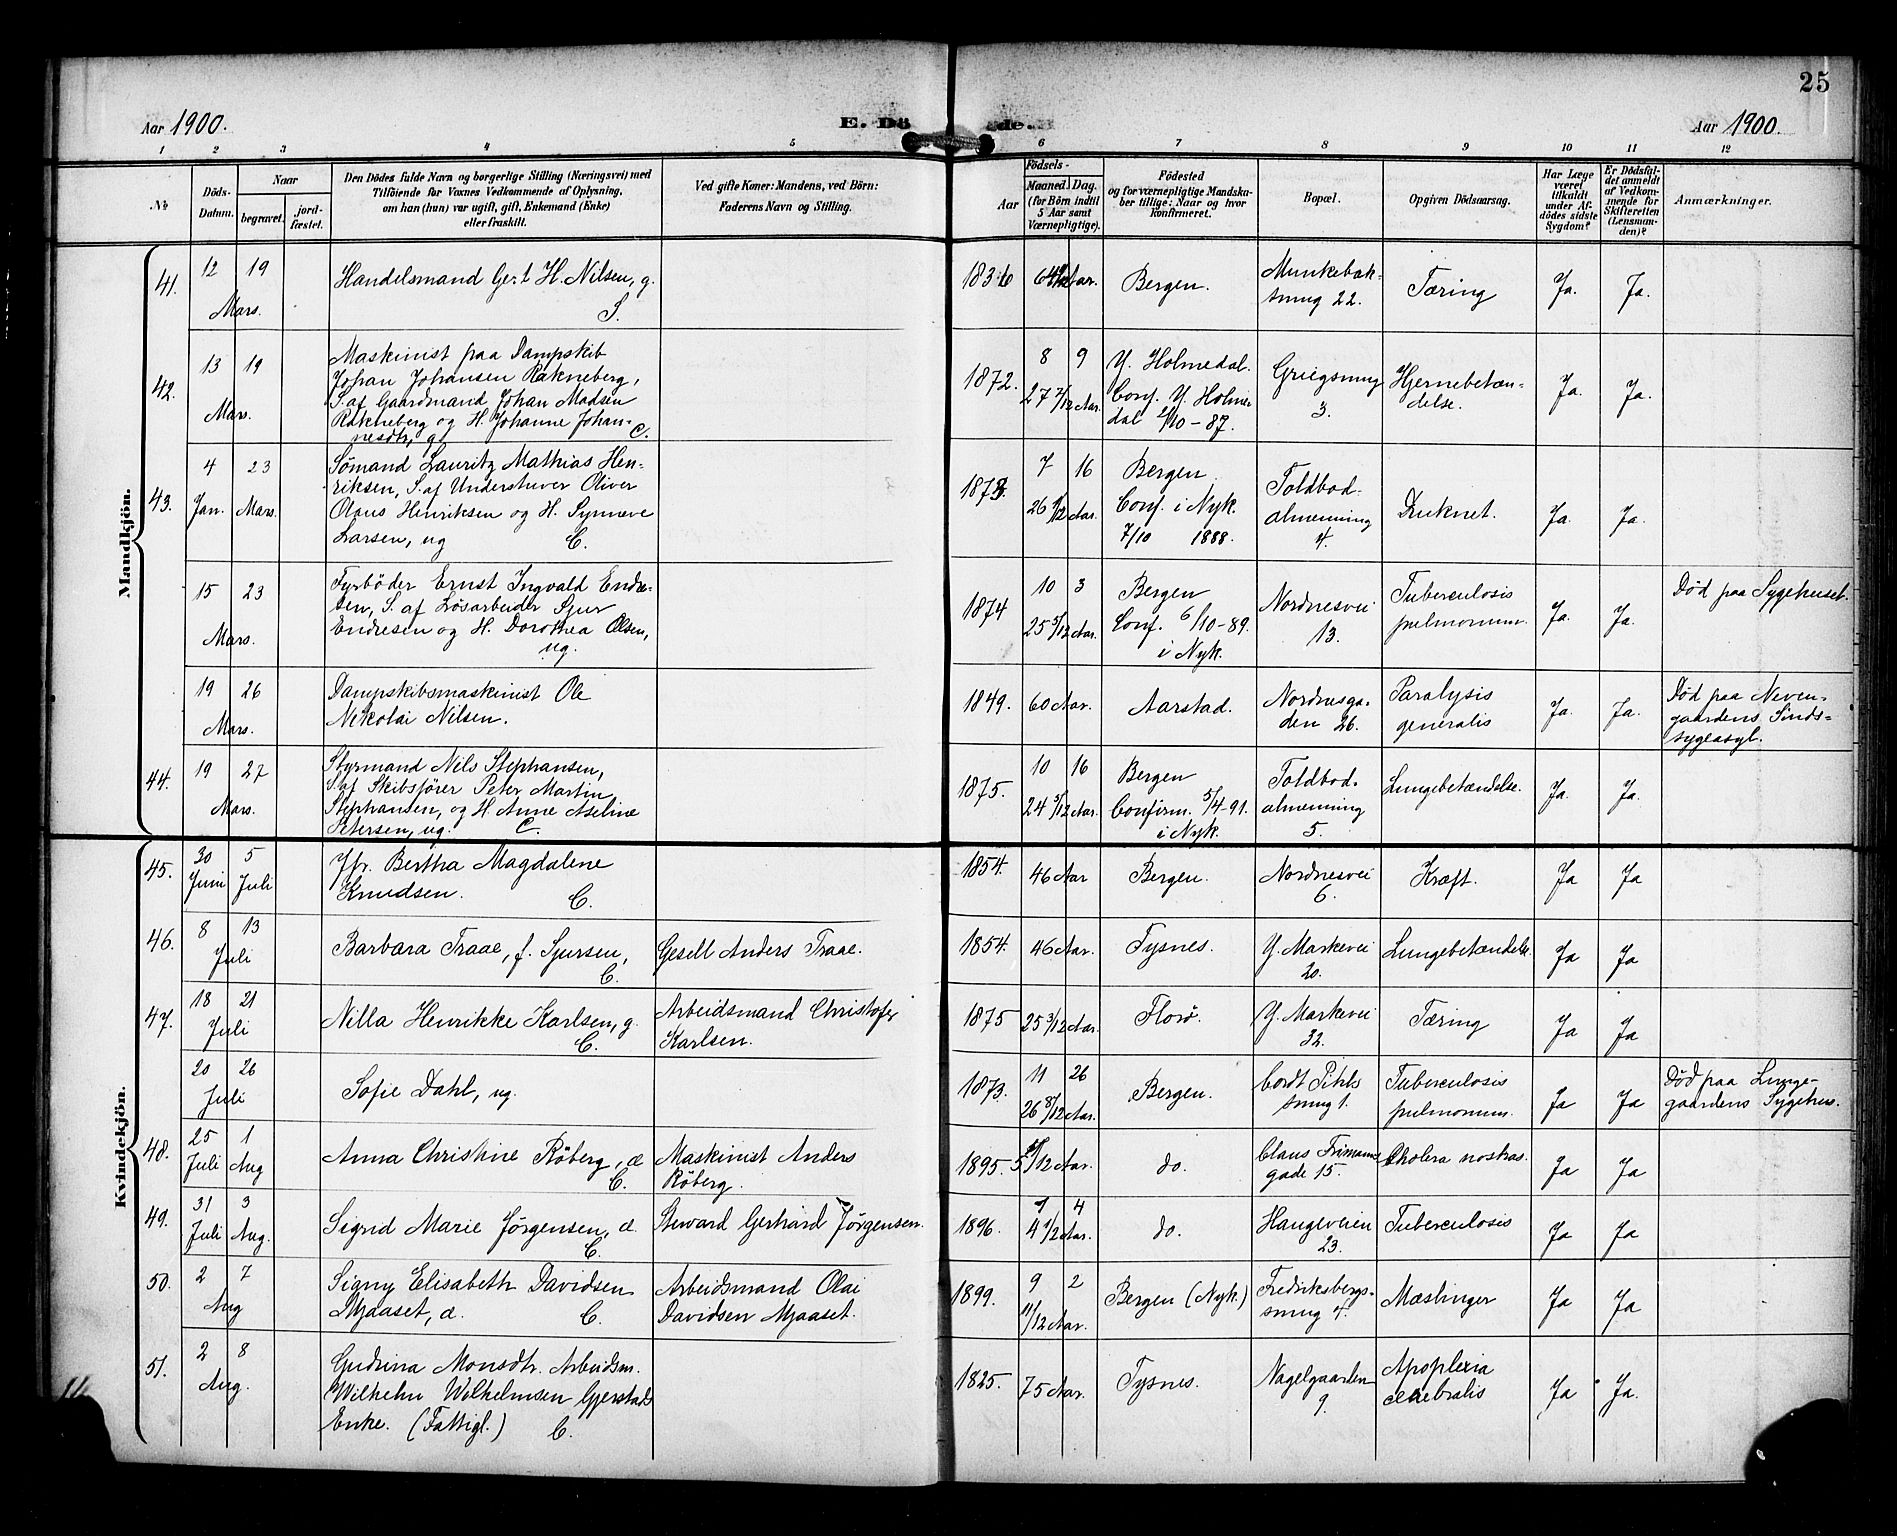 25
Aar 1900.
E. Dö
de.
Aar 1900.
1 2 3 4 5 6 7 8 9 10 11 12
№
Döds-
Datum.
Naar
begravet.
jord-
fæstet.
Den Dödes fulde Navn og borgerlige Stilling (Næringsvei) med
Tilföiende for Voxnes Vedkommende af Oplysning,
om han (hun) var ugift, gift, Enkemand (Enke)
eller fraskilt.
Ved gifte Koner: Mandens, ved Börn:
Faderens Navn og Stilling.
Födsels-
Aar
Maaned. Dag.
(for Börn indtil
5 Aar samt
Værnepligtige).
Födested
og for værnepligtige Mandska-
ber tillige: Naar og hvor
konfirmeret.
Bopæl.
Opgiven Dödsaarsag.
Har Læge
været
tilkaldt
under Af-
dödes sidste
Sygdom?
Er Dödsfal-
det anmeldt
af Vedkom-
mende for
Skifteretten
(Lensman-
den)?
Anmærkninger.
Mandkjön.
41.
12 19
Mars.
Handelsmand Gert H. Nilsen, g.
S.
1836
Aar.
Bergen.
Munkebæk-
smug 22.
Tæring
Ja.
Ja.
42.
13 19
Mars.
Maskinist paa Dampskib
Johan Johansen Rakneberg,
S. af Gaardmand Johan Madsen
Rakneberg og H. Johanne Johan-
nesdtr, g.
C.
1872.
8 9
27 7/12 Aar.
Y. Holmedal.
Conf. Y. Holme
dal /10-87.
Griegsmug
3.
Hjernebetæn-
delse.
Ja.
Ja.
43.
4 23
Jan. Mars.
Sömand Lauritz Mathias Hen-
riksen, S. af Understuver Oliver
Olaus Henriksen og H. Synneve
Larsen, ug
C.
1873.
7 16
26 /12 Aar.
Bergen.
Conf. i Nyk.
7/10 1888.
Toldbod-
almenning
4.
Druknet.
Ja.
Ja.
15 23
Mars.
Fyrböder Ernst Ingvald Endre-
sen, S. af Lösarbeider Sjur
Endresen og H. Dorothea Olsen,
ug.
1874
10 3
25 5/12 Aar.
Bergen
Conf. 6/10-89.
i Nyk.
Nordnesvei
13.
Tuberculosis
pulmonum.
Ja.
Ja.
Död paa Sygehuset.
19 26
Mars.
Dampskibsmaskinist Ole
Nikolai Nilsen.
1849.
60 Aar.
Aarstad.
Nordnesga-
den 26.
Paralysis
generalis
Ja.
Ja.
Död paa Neven-
gaardens Sinds-
sygeasyl.
44.
19 27
Mars.
Styrmand Nils Stephansen,
S. af Skibsförer Peter Martin
Stephansen, og H. Anne Aseline
Petersen, ug.
C.
1875.
10 16
24 5/12 Aar.
Bergen
Confirm. 5/4-91.
i Nyk.
Toldbod.
almenning
5.
Lungebetændelse.
Ja.
Ja.
Kvindekjön.
45.
30 5
Juni Juli
Jfr. Bertha Magdalene
Knudsen.
C.
1854.
46 Aar
Bergen.
Nordnesvei
6.
Kræft.
Ja
Ja
46.
8 13
Juli
Barbara Traae, f. Sjursen,
C.
Gesell Anders Traae.
1854.
46 Aar.
Tysnes.
Y. Markevei
20.
Lungebetændelse
Ja
Ja
47.
18 21
Juli
Nilla Henrikke Karlsen, g.
C.
Arbeidsmand Christofer
Karlsen.
1875
25 3/12 Aar.
Florö.
Y. Markevei
32.
Tæring
Ja
Ja
20 26
Juli
Sofie Dahl, ug.
1873.
11 26
26 8/12 Aar.
Bergen.
Cordt Pihls
smug 1.
Tuberculosis
pulmonum.
Ja
Ja
Död paa Lunge-
gaardens Sygehus.
48.
25 1
Juli Aug
Anna Christine Röberg, æ
C.
Maskinist Anders
Röberg.
1895.
5 /12 Aar.
do.
Claus Frimanns
gade 15.
Cholera nostras.
Ja
Ja
49.
31 3
Juli Aug.
Sigrid Marie Jörgensen, æ.
C.
Steward Gerhard Jörgensen.
1896.
4
4 1/2 Aar.
do.
Haugeveien
23.
Tuberculosis
Ja
Ja
50.
2 7
Aug
Signy Elisabeth Davidsen
Mjaaset, æ.
C.
Arbeidsmand Olai
Davidsen Mjaaset.
1899.
9 2
11/12 Aar.
Bergen (Nyk.)
Fredriksbergs-
smug 4.
Mæslinger
Ja
Ja
51.
2 8
Aug.
Gudrina Monsdtr. Arbeidsm.
Wilhelm Wilhelmsen Gjerstads
Enke. (Fattigl.)
C.
1825.
75 Aar.
Tysnes.
Nagelgaarden
9.
Apoplexia
cerebralis
Ja
Ja.